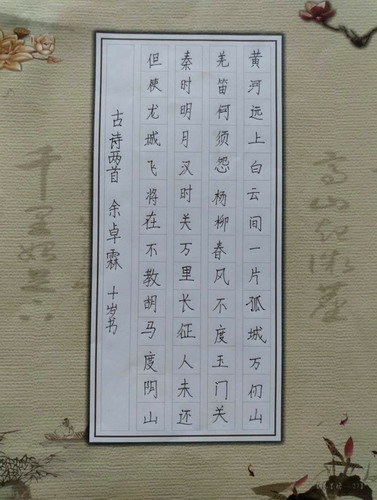 黄河远上白云间一片孤城万仞山
羌笛何须怨杨柳春风不度玉门关
秦时明月汉时关万里长征人未还
但使龙城飞将在不教胡马度阴山
古诗两首 余卓霖 十岁书